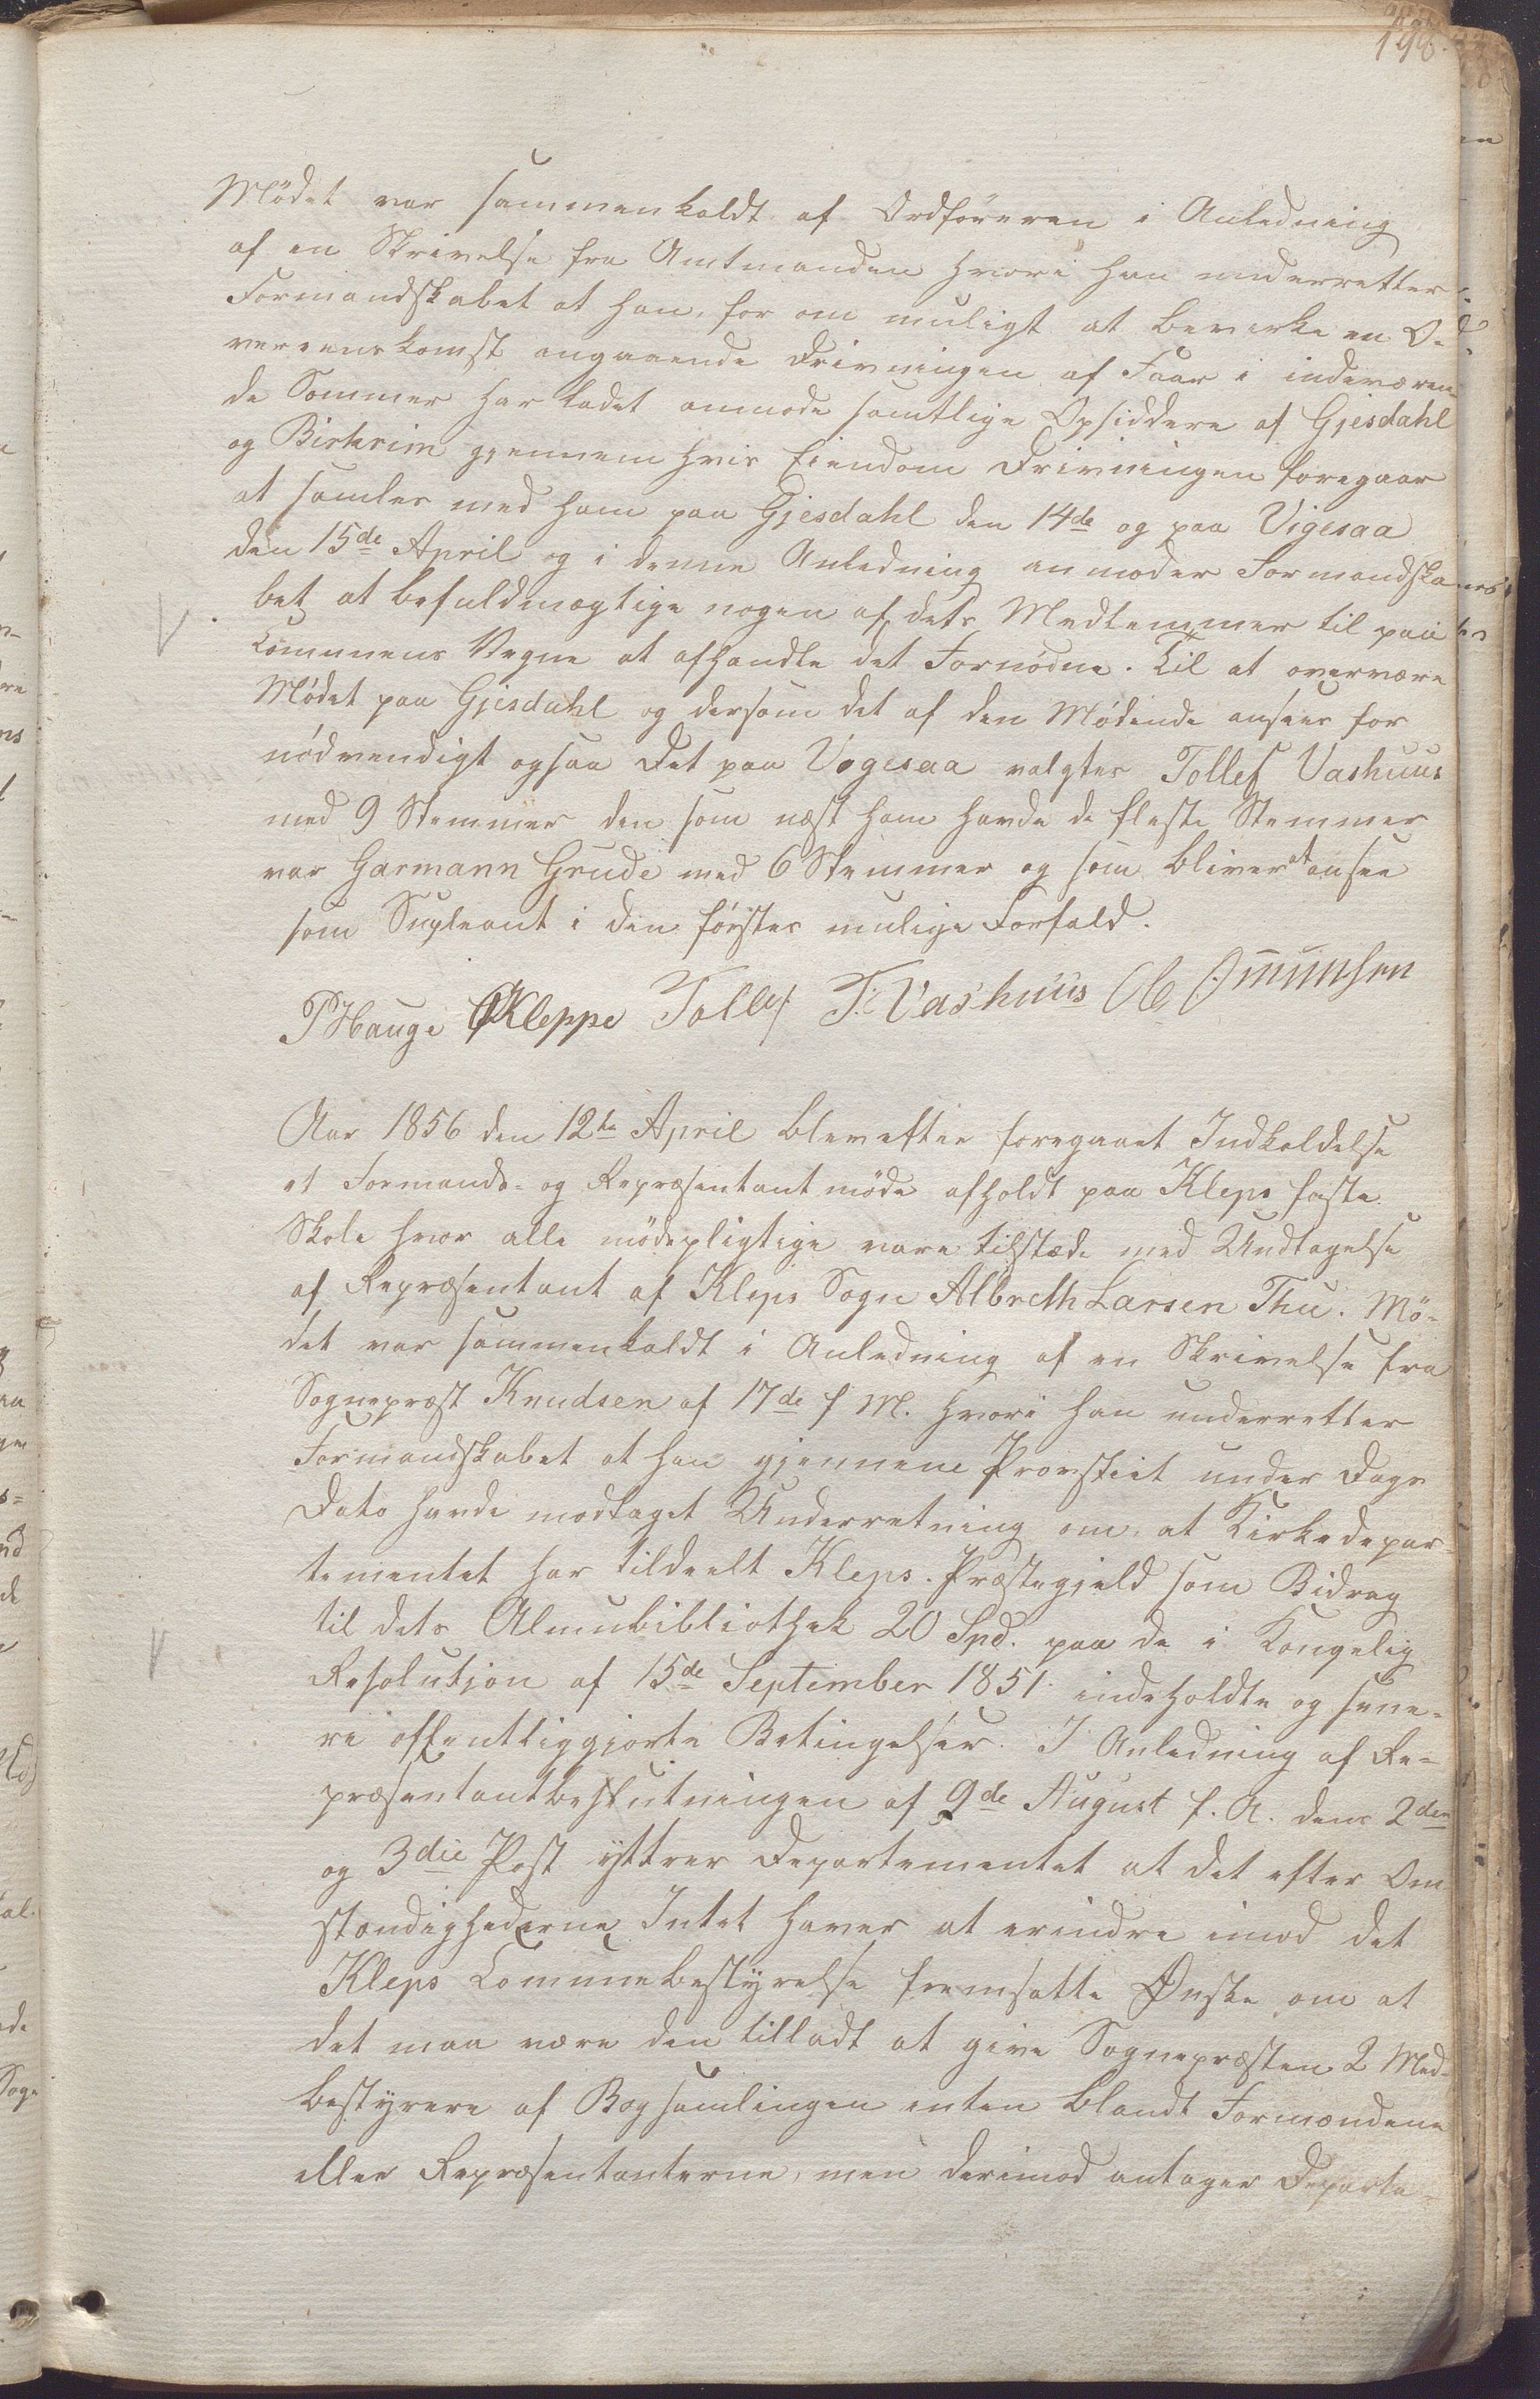 Mødet var sammenkaldt af Ordføreren i Anledning
af en Skrivelse fra Amtmanden hvori han underretter
Formandskabet at han, for om muligt at bevirke en O-
vereenskomst angaaende Drivningen af Faar i indeværen-
de Sommer har ladet anmode samtlige Opsiddere af Gjesdahl
og Birkrim gjennem hvis Eiendom Drivningen foregaar
at samles med ham paa Gjesdahl den 14de og paa Vigesaa
den 15de April og i denne Anledning anmoder Formandska-
bet at befuldmægtige nogen af dets Medlemmer til paa
Communens Vegne at afhandle det Fornødne. Til at overvære
Mødet paa Gjesdahl og dersom det af den Mødende ansees for
nødvendigt ogsaa Det paa Vogesaa valgtes Tollef Vashuus
med 9 Stemmer den som næst ham havde de fleste Stemmer
var Garmann Grude med 6 Stemmer og som bliver at ansee
som Supleant i den førstes mulige Forfald.
PHauge OKleppe Tollef T. Vashuus Ole Omunsen
Aar 1856 den 12te April blev efter foregaaet Indkaldelse
et Formands- og Repræsentantmøde afholdt paa Kleps faste
Skole hvor alle mødepligtige vare tilstæde med Undtagelse
af Repræsentant af Kleps Sogn Albreth Larsen Thu. Mø-
det var sammenkaldt i Anledning af en Skrivelse fra
Sognepræst Knudsen af 17de f M. hvori han underretter
Formandskabet at han gjennem Provstiet under Dags
Dato havde modtaget Underretning om, at Kirkedepar-
tementet har tildeelt Kleps Præstegjeld som Bidrag
til dets Almubibliothek 20 Spd. paa de i Kongelig
Resolution af 15de September 1851 indeholdte og sene-
re offentliggjorte Betingelser. I Anledning af Re-
præsentantbeslutningen af 9de August f. A. dens 2den
og 3die Post yttrer Departementet at det efter Om-
stændighederne Intet haver at erindre imod det
Kleps Communebestyrelse fremsatte Ønske om at
det maa være den tilladt at give Sognepræsten 2 Med-
bestyrere af Bogsamlingen enten blandt Formændene
eller Repræsentanterne, men derimod antager Departe-